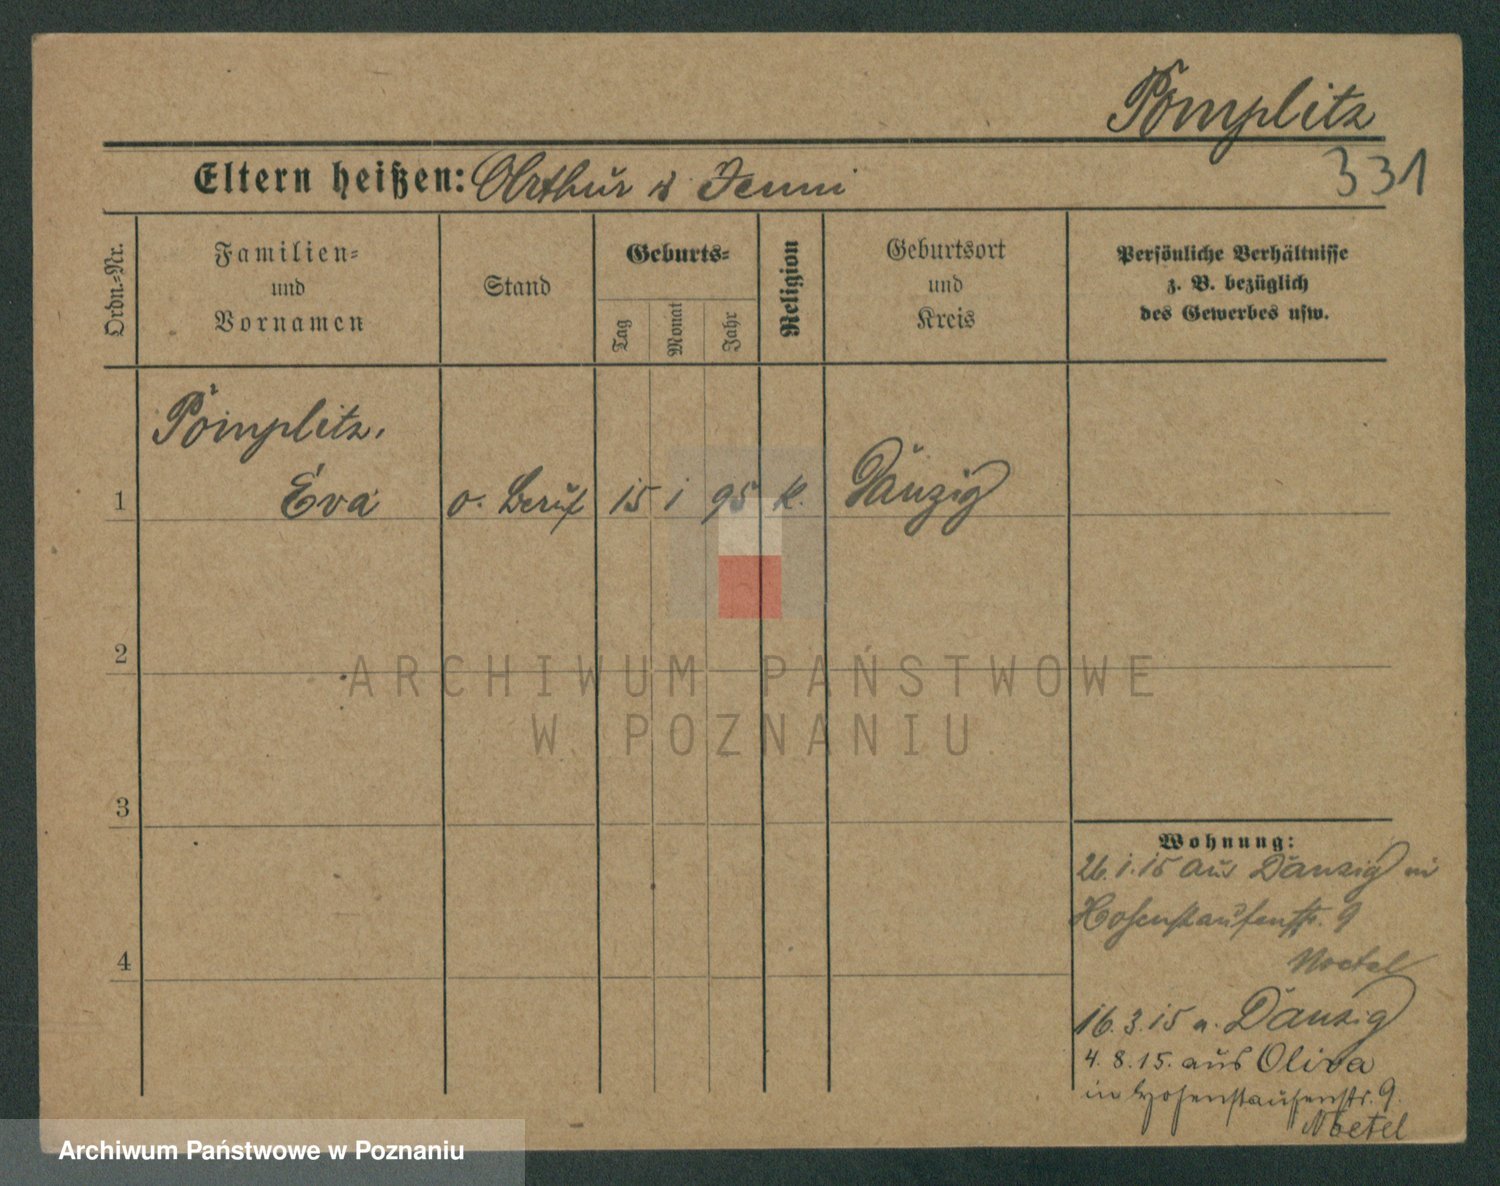 Pomplitz
Eltern heißen: Arthur u Jenni
331
Ordn.-Nr.
Familien-
und
Vornamen
Stand
Geburts-
Tag
Monat
Jahr
Religion
Geburtsort
und
Kreis
Persönliche Verhältnisse
z. B. bezüglich
des Gewerbes usw.
Pomplitz,
1 Eva o. Beruf 15 1 95 k. Danzig
2
3
4
Wohnung:
26.1.15 aus Danzig in
Hohenstaufenstr. 9
Noetel
16.3.15 n. Danzig
4.8.15. aus Oliva
in Hohenstaufenstr. 9.
Noetel
ARCHIWUM PAŃSTWOWE
W POZNANIU
Archiwum Państwowe w Poznaniu